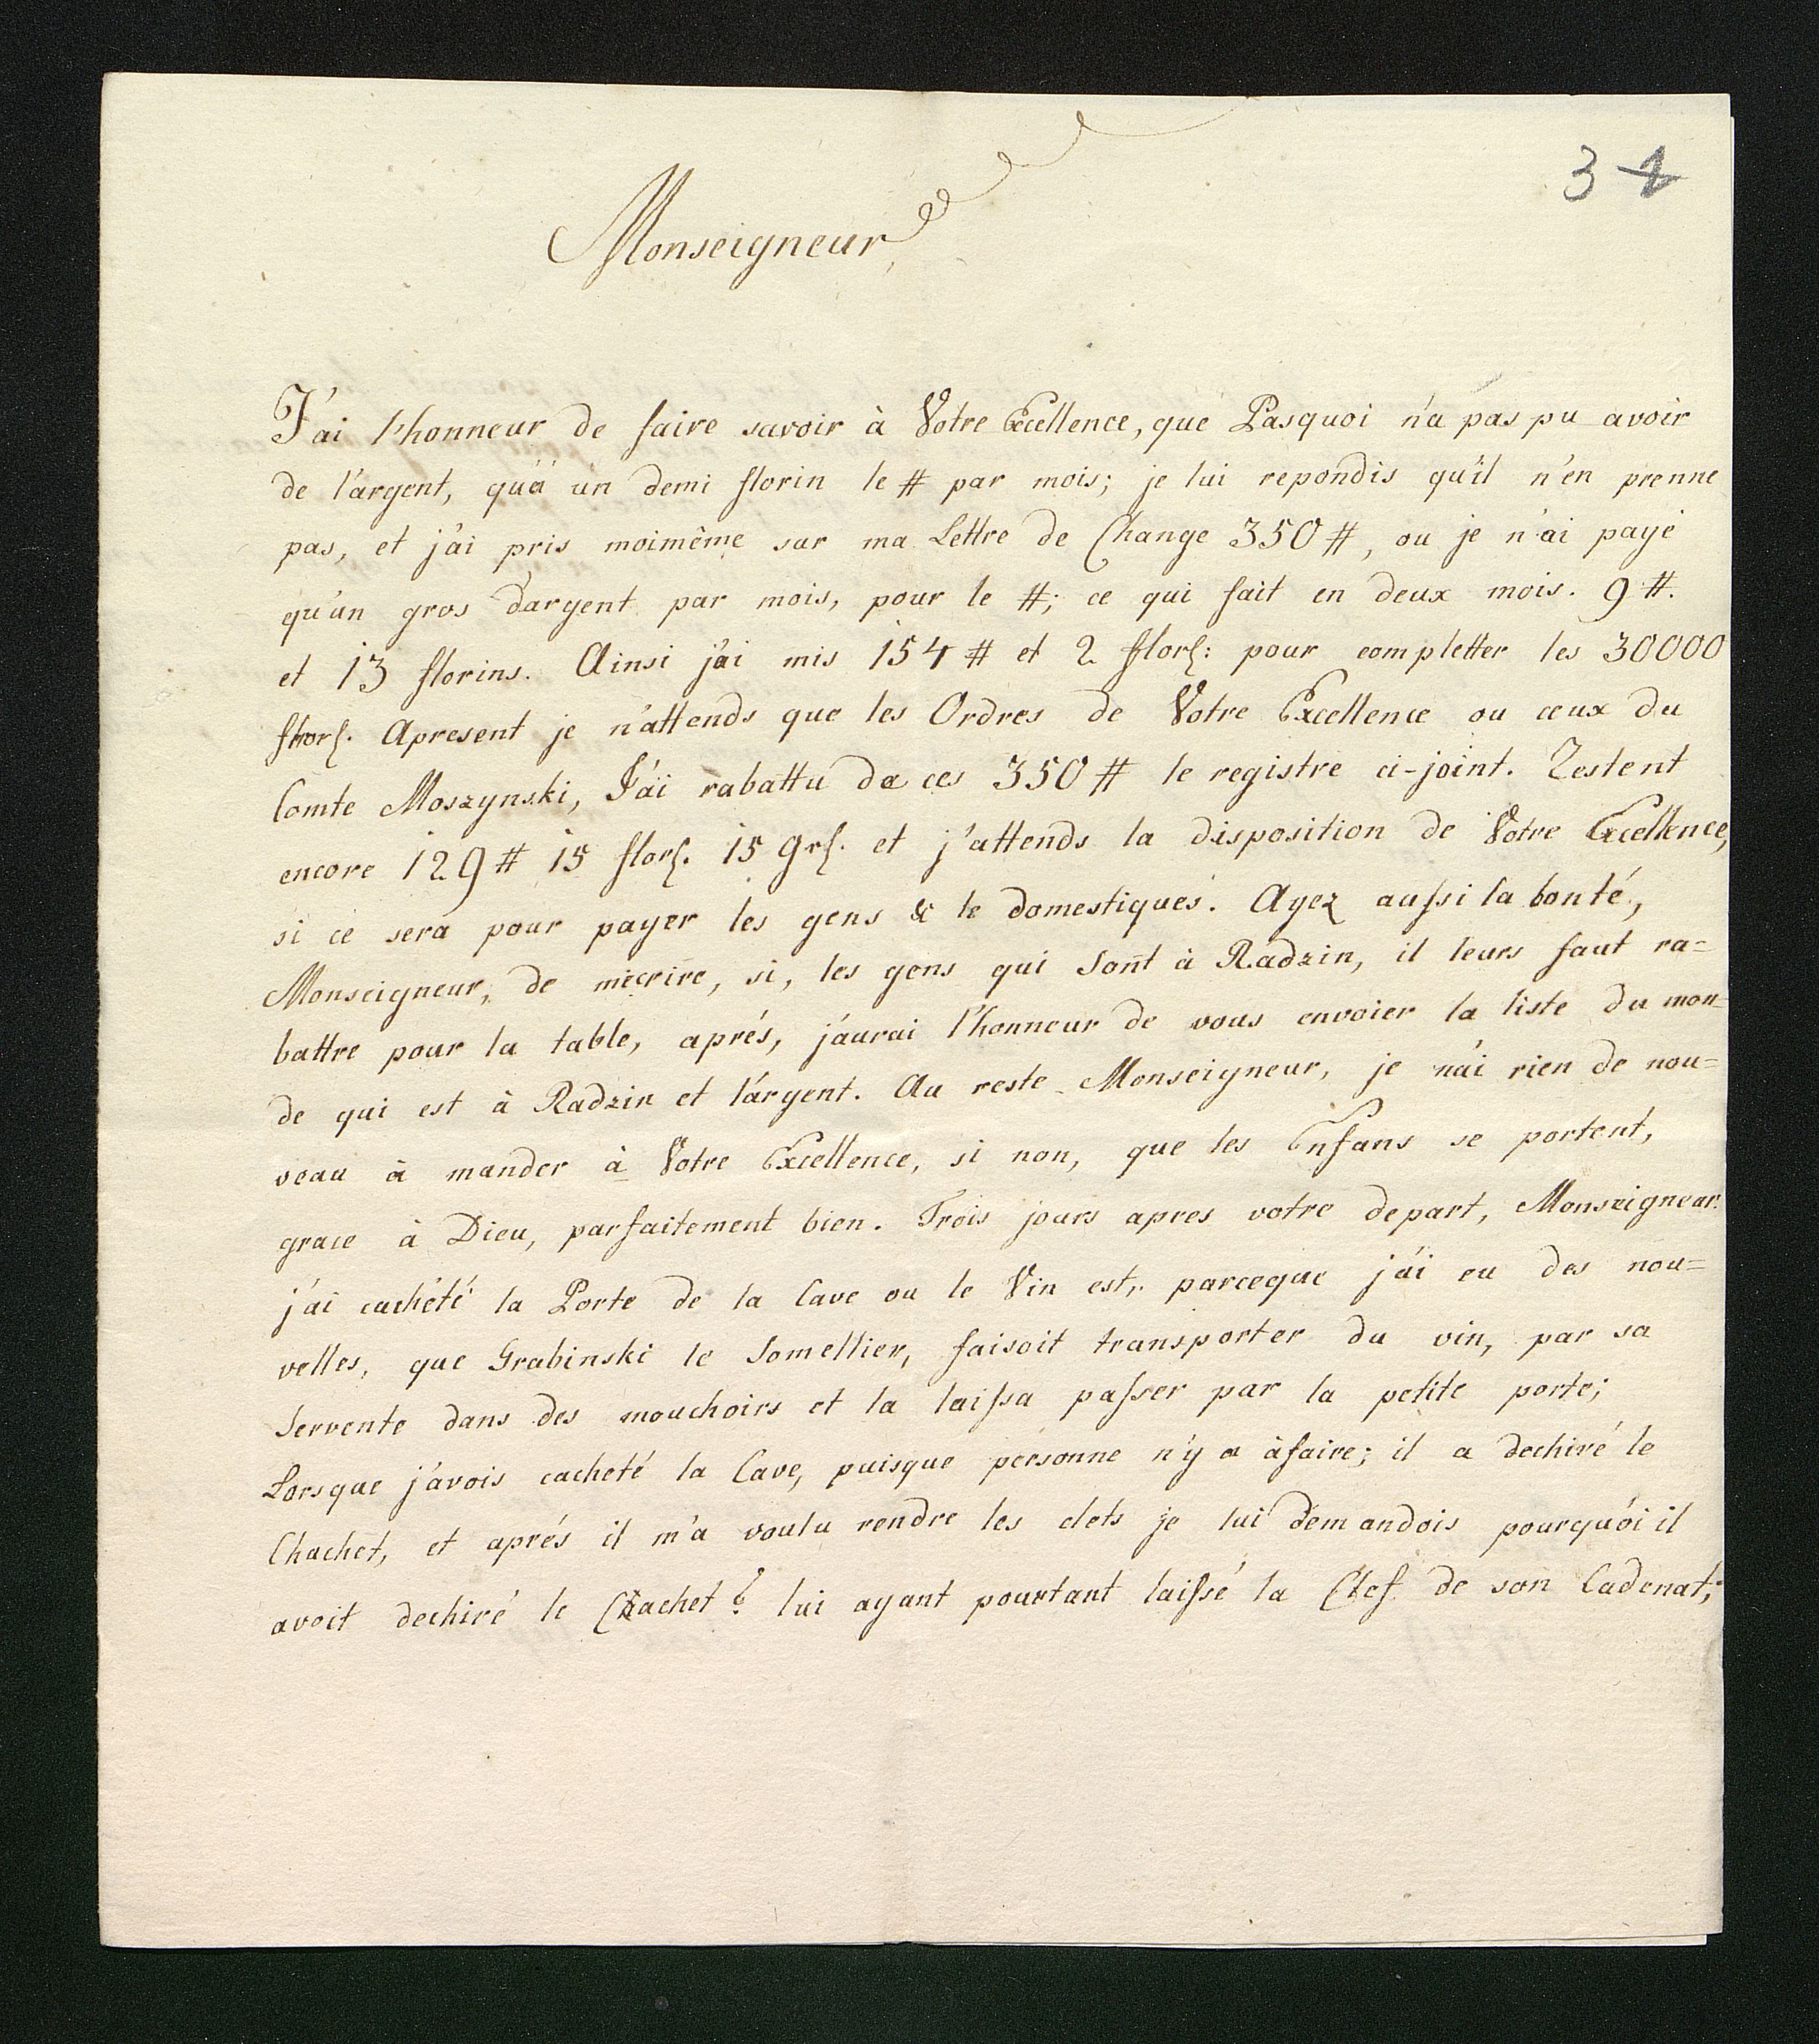 3 4
Monseigneur,
J'ai l'honneur de faire savoir à Votre Excellence, que Pasquoi n'a pas pu avoir
de l'argent, qu'à un demi florin le # par mois; je lui repondis qu'il n'en prenne
pas, et j'ai pris moimême sur ma Lettre de Change 350 #, ou je n'ai payé
qu'un gros d'argent par mois, pour le #; ce qui fait en deux mois. 9 #.
et 13 florins. Ainsi j'ai mis 154 # et 2 flors: pour completter les 30000
flors. Apresent je n'attends que les Ordres de Votre Excellence ou ceux du
Comte Moszynski, J'ai rabattu de ces 350 # le registre ci-joint. Restent
encore 129 # 15 flors. 15 grs. et j'attends la disposition de Votre Excellence,
si ce sera pour payer les gens & le domestiques. Ayez aussi la bonté,
Monseigneur, de mecrire, si, les gens qui sont à Radzin, il leurs faut ra=
battre pour la table, aprés, j'aurai l'honneur de vous envoier la liste du mon=
de qui est à Radzin et l'argent. Au reste Monseigneur, je n'ai rien de nou=
veau à mander à Votre Excellence, si non, que les Enfans se portent,
grace à Dieu, parfaitement bien. Trois jours apres votre depart, Monseigneur.
j'ai cachété la Porte de la Cave ou le Vin est, parceque j'ai eu des nou=
velles, que Grabinski le Somellier, faisoit transporter du vin, par sa
Servente dans des mouchoirs et la laissa passer par la petite porte;
Lorsque j'avois cacheté la Cave, puisque personne n'y a àfaire; il a dechiré le
Chachet, et aprés il m'a voulu rendre les clefs je lui demandois pourquoi il
avoit dechiré le Chachet? lui ayant pourtant laissé la Clef de son Cadenat;